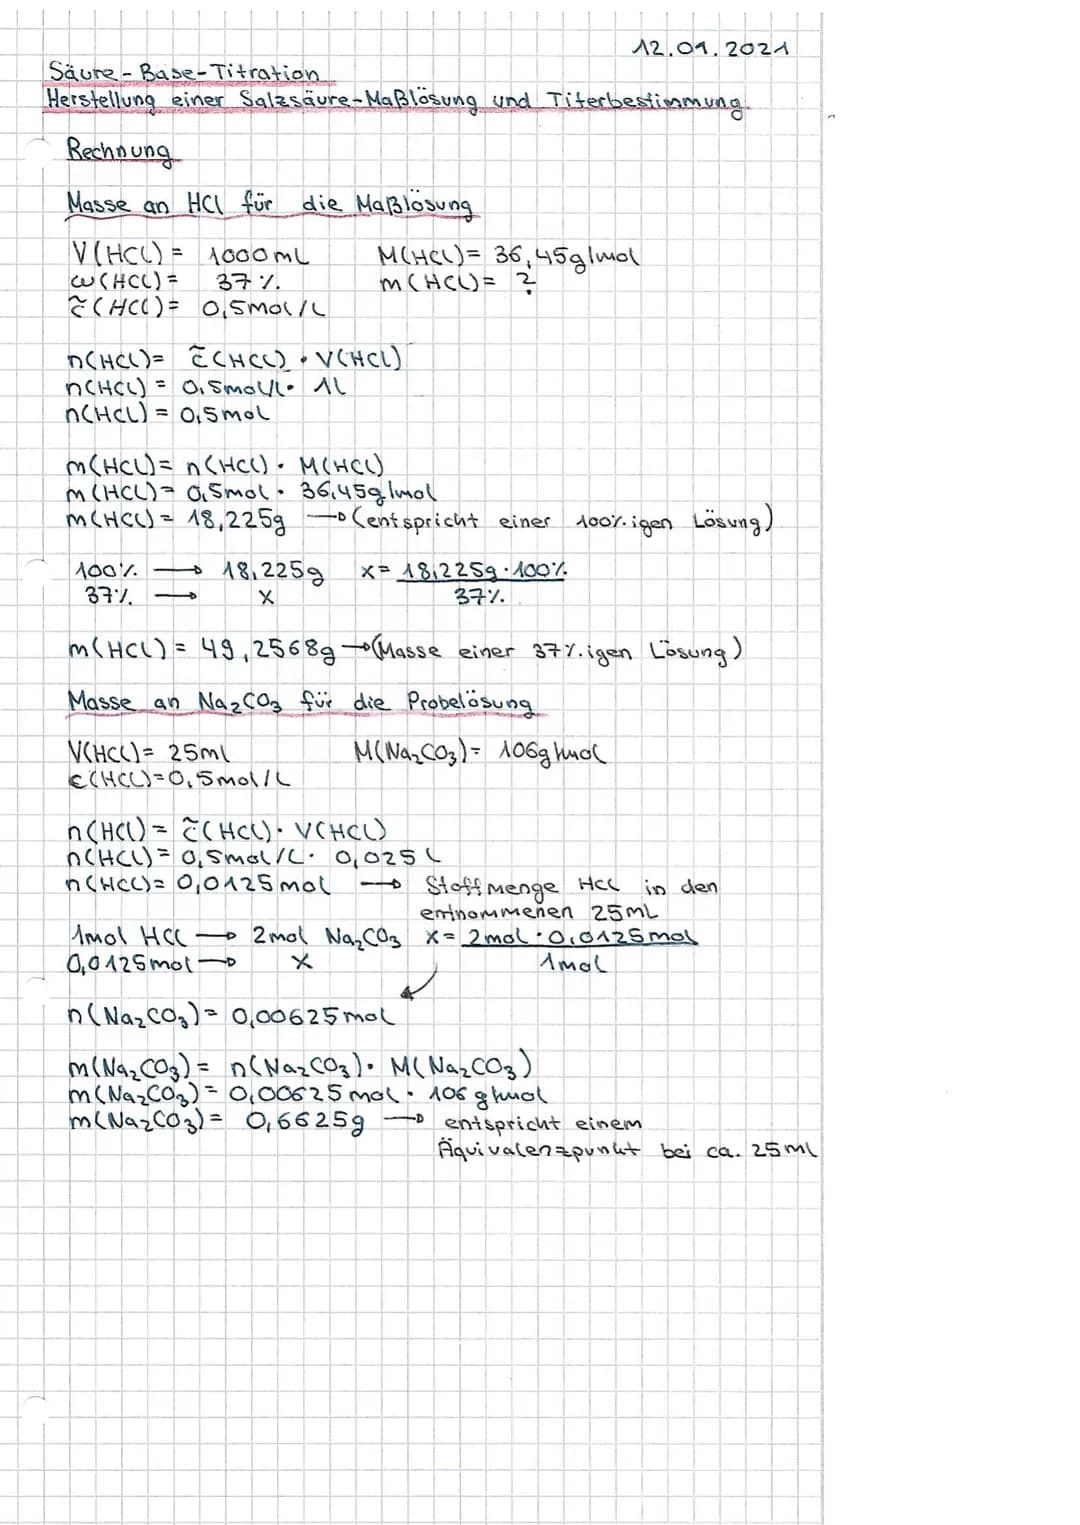 12.01.2021
Säure-Base-Titration
Herstellung einer Salzsäure-Maßlösung und Titerbestimmung
Rechnung
Masse an HCl für die Maßlösung
V(HCl) = 1000 mL M(HCl) = 36,45g/mol
ω(HCl) = 37 % m(HCl) = ?
c̃(HCl) = 0,5mol/L
n(HCl) = c̃(HCl) · V(HCl)
n(HCl) = 0,5mol/l · 1L
n(HCl) = 0,5mol
m(HCl) = n(HCl) · M(HCl)
m(HCl) = 0,5mol · 36,45g/mol
m(HCl) = 18,225g → (entspricht einer 100%igen Lösung)
100% → 18,225g x = 18,225g · 100%
37% → x 37%
m(HCl) = 49,2568g → (Masse einer 37%igen Lösung)
Masse an Na₂CO₃ für die Probelösung
V(HCl) = 25ml M(Na₂CO₃) = 106g/mol
c(HCl) = 0,5mol/L
n(HCl) = c̃(HCl) · V(HCl)
n(HCl) = 0,5mol/L · 0,025 L
n(HCl) = 0,0125mol → Stoffmenge HCl in den
entnommenen 25mL
1mol HCl → 2mol Na₂CO₃ x = 2mol · 0,0125mol
0,0125mol → x 1mol
n(Na₂CO₃) = 0,00625mol
m(Na₂CO₃) = n(Na₂CO₃) · M(Na₂CO₃)
m(Na₂CO₃) = 0,00625mol · 106 g/mol
m(Na₂CO₃) = 0,6625g → entspricht einem
Äquivalenzpunkt bei ca. 25ml